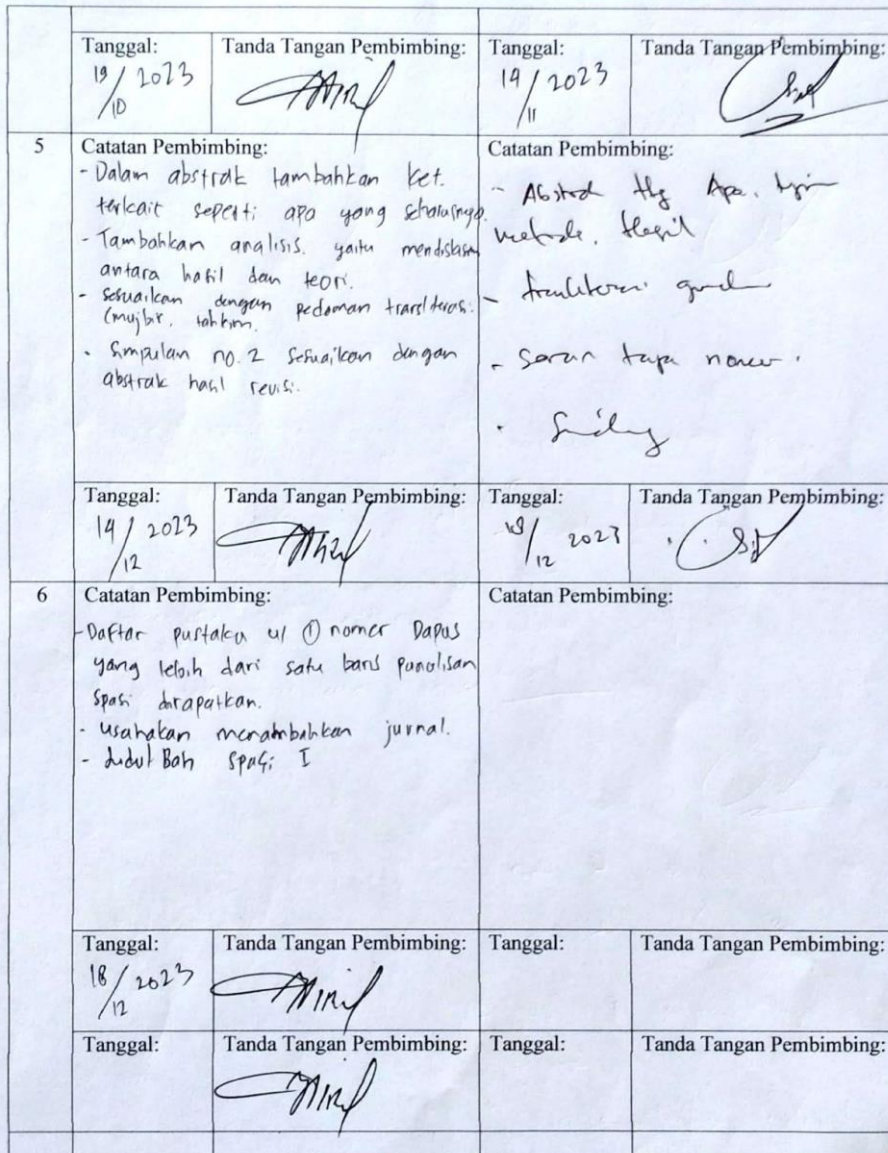 Tanggal:
Tanda Tangan Pembimbing:
Tanggal:
Tanda Tangan Pembimbing:
19/10 2023
14/11 2023
5
Catatan Pembimbing:
- Dalam abstrak tambahkan ket.
terkait seperti apa yang seharusnya.
- Tambahkan analisis, yaitu
antara hasil dan teori.
- Sesuaikan dengan pedoman transliterasi:
(mujbir, tahkim.
- Simpulan no. 2 sesuaikan dengan
abstrak hasil revisi.
Catatan Pembimbing:
- Apa,
metode, Hasil
-
- Saran tanpa nomer.
-
Tanggal:
Tanda Tangan Pembimbing:
Tanggal:
Tanda Tangan Pembimbing:
14/12 2023
/12 2023
6
Catatan Pembimbing:
- Daftar pustaka u/ ① nomer Dapus
yang lebih dari satu baris penulisan
spasi dirapatkan.
- usahakan menambahkan jurnal.
- Judul Bab spasi I
Catatan Pembimbing:
Tanggal:
Tanda Tangan Pembimbing:
Tanggal:
Tanda Tangan Pembimbing:
18/12 2023
Tanggal:
Tanda Tangan Pembimbing:
Tanggal:
Tanda Tangan Pembimbing: